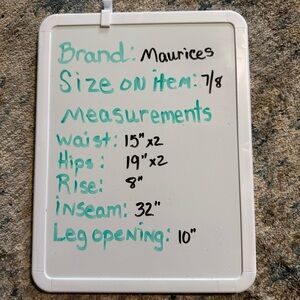 Brand: Maurices
Size on item: 7/8
Measurements
Waist: 15" x2
Hips: 19" x2
Rise: 8"
inseam: 32"
Leg opening: 10"